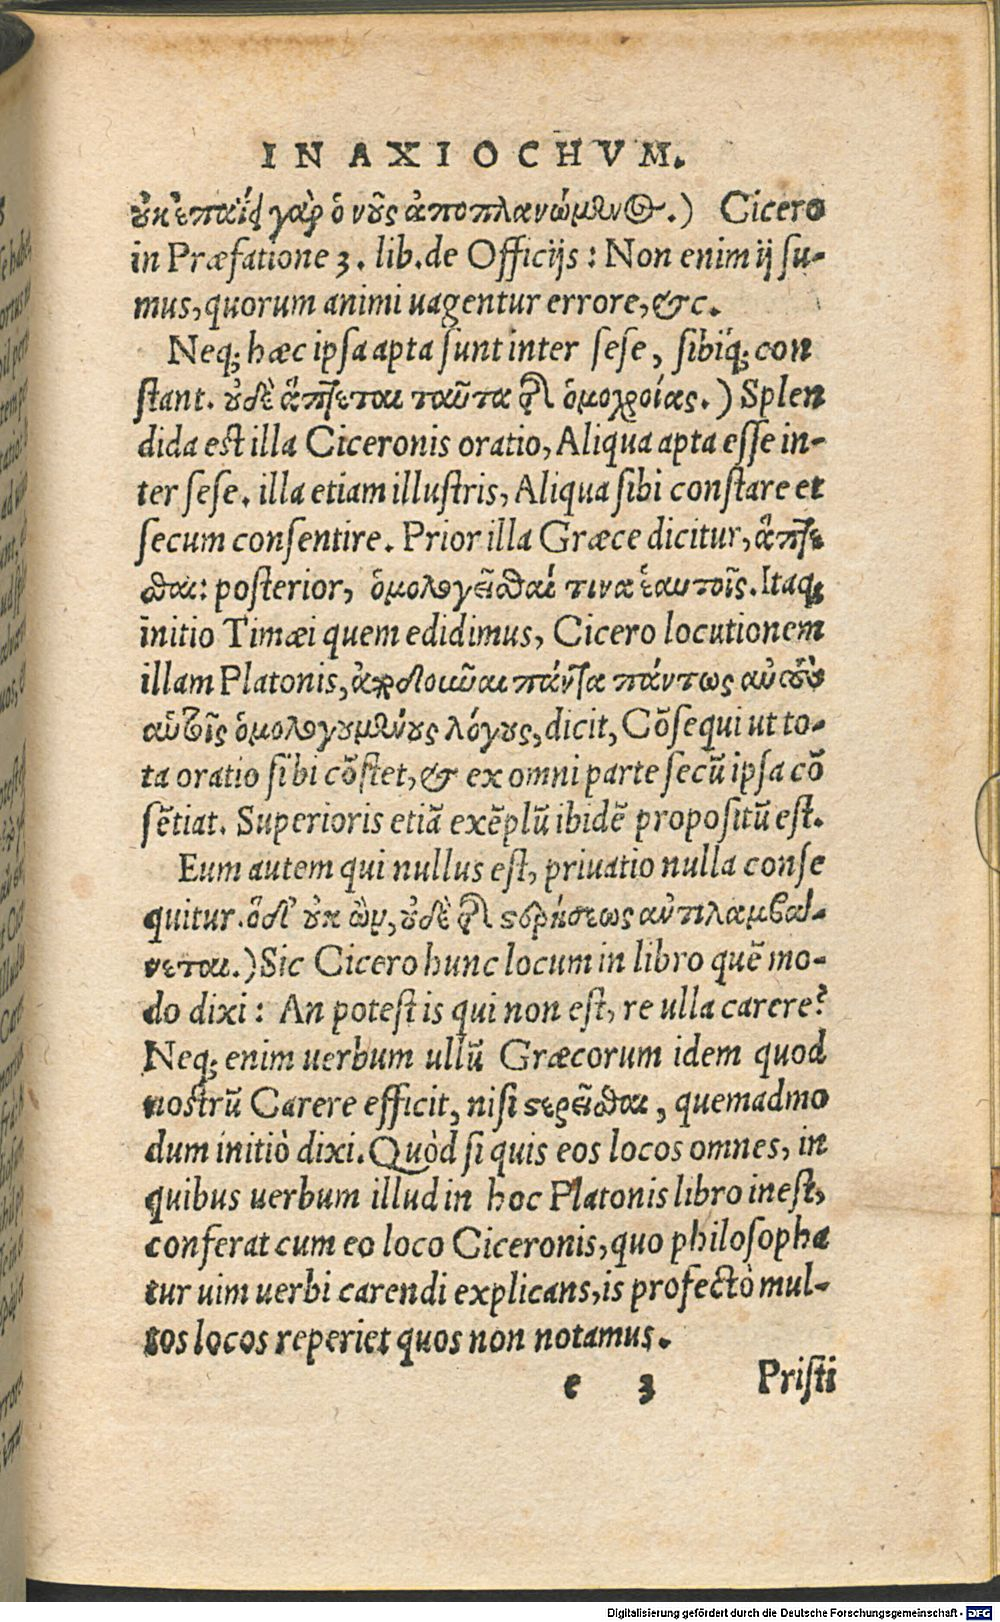 IN AXIOCHVM.
οὐκ ἐπαΐει γὰρ ὁ νοῦς ἀποπλανώμενος.) Cicero
in Præfatione 3. lib. de Officijs: Non enim ij su-
mus, quorum animi uagentur errore, &c.
Neq; hæc ipsa apta sunt inter sese, sibiq; con
stant. οὐδὲ ἅπτεται ταῦτα τῆς ὁμολογίας.) Splen
dida est illa Ciceronis oratio, Aliqua apta esse in-
ter sese. illa etiam illustris, Aliqua sibi constare et
secum consentire. Prior illa Græce dicitur, ἅπτε
σθαι: posterior, ὁμολογεῖσθαί τινα ἑαυτοῖς. Itaq;
initio Timæi quem edidimus, Cicero locutionem
illam Platonis, ἀποδοῦναι πάντα πάντως αὐτοὺς
αὑτοῖς ὁμολογουμένους λόγους, dicit, Cõsequi ut to-
ta oratio sibi cõstet, & ex omni parte secũ ipsa cõ
sẽtiat. Superioris etiã exẽplũ ibidẽ propositũ est.
Eum autem qui nullus est, priuatio nulla conse
quitur. ὁ δ' οὐκ ὢν, οὐδὲ τῆς στερήσεως ἀντιλαμβά-
νεται.) Sic Cicero hunc locum in libro quẽ mo-
do dixi: An potest is qui non est, re ulla carere?
Neq; enim uerbum ullũ Græcorum idem quod
nostrũ Carere efficit, nisi στερεῖσθαι, quemadmo
dum initiò dixi. Quòd si quis eos locos omnes, in
quibus uerbum illud in hoc Platonis libro inest,
conferat cum eo loco Ciceronis, quo philosopha
tur uim uerbi carendi explicans, is profectò mul-
tos locos reperiet quos non notamus.
e 3 Pristi
Digitalisierung gefördert durch die Deutsche Forschungsgemeinschaft - DFG